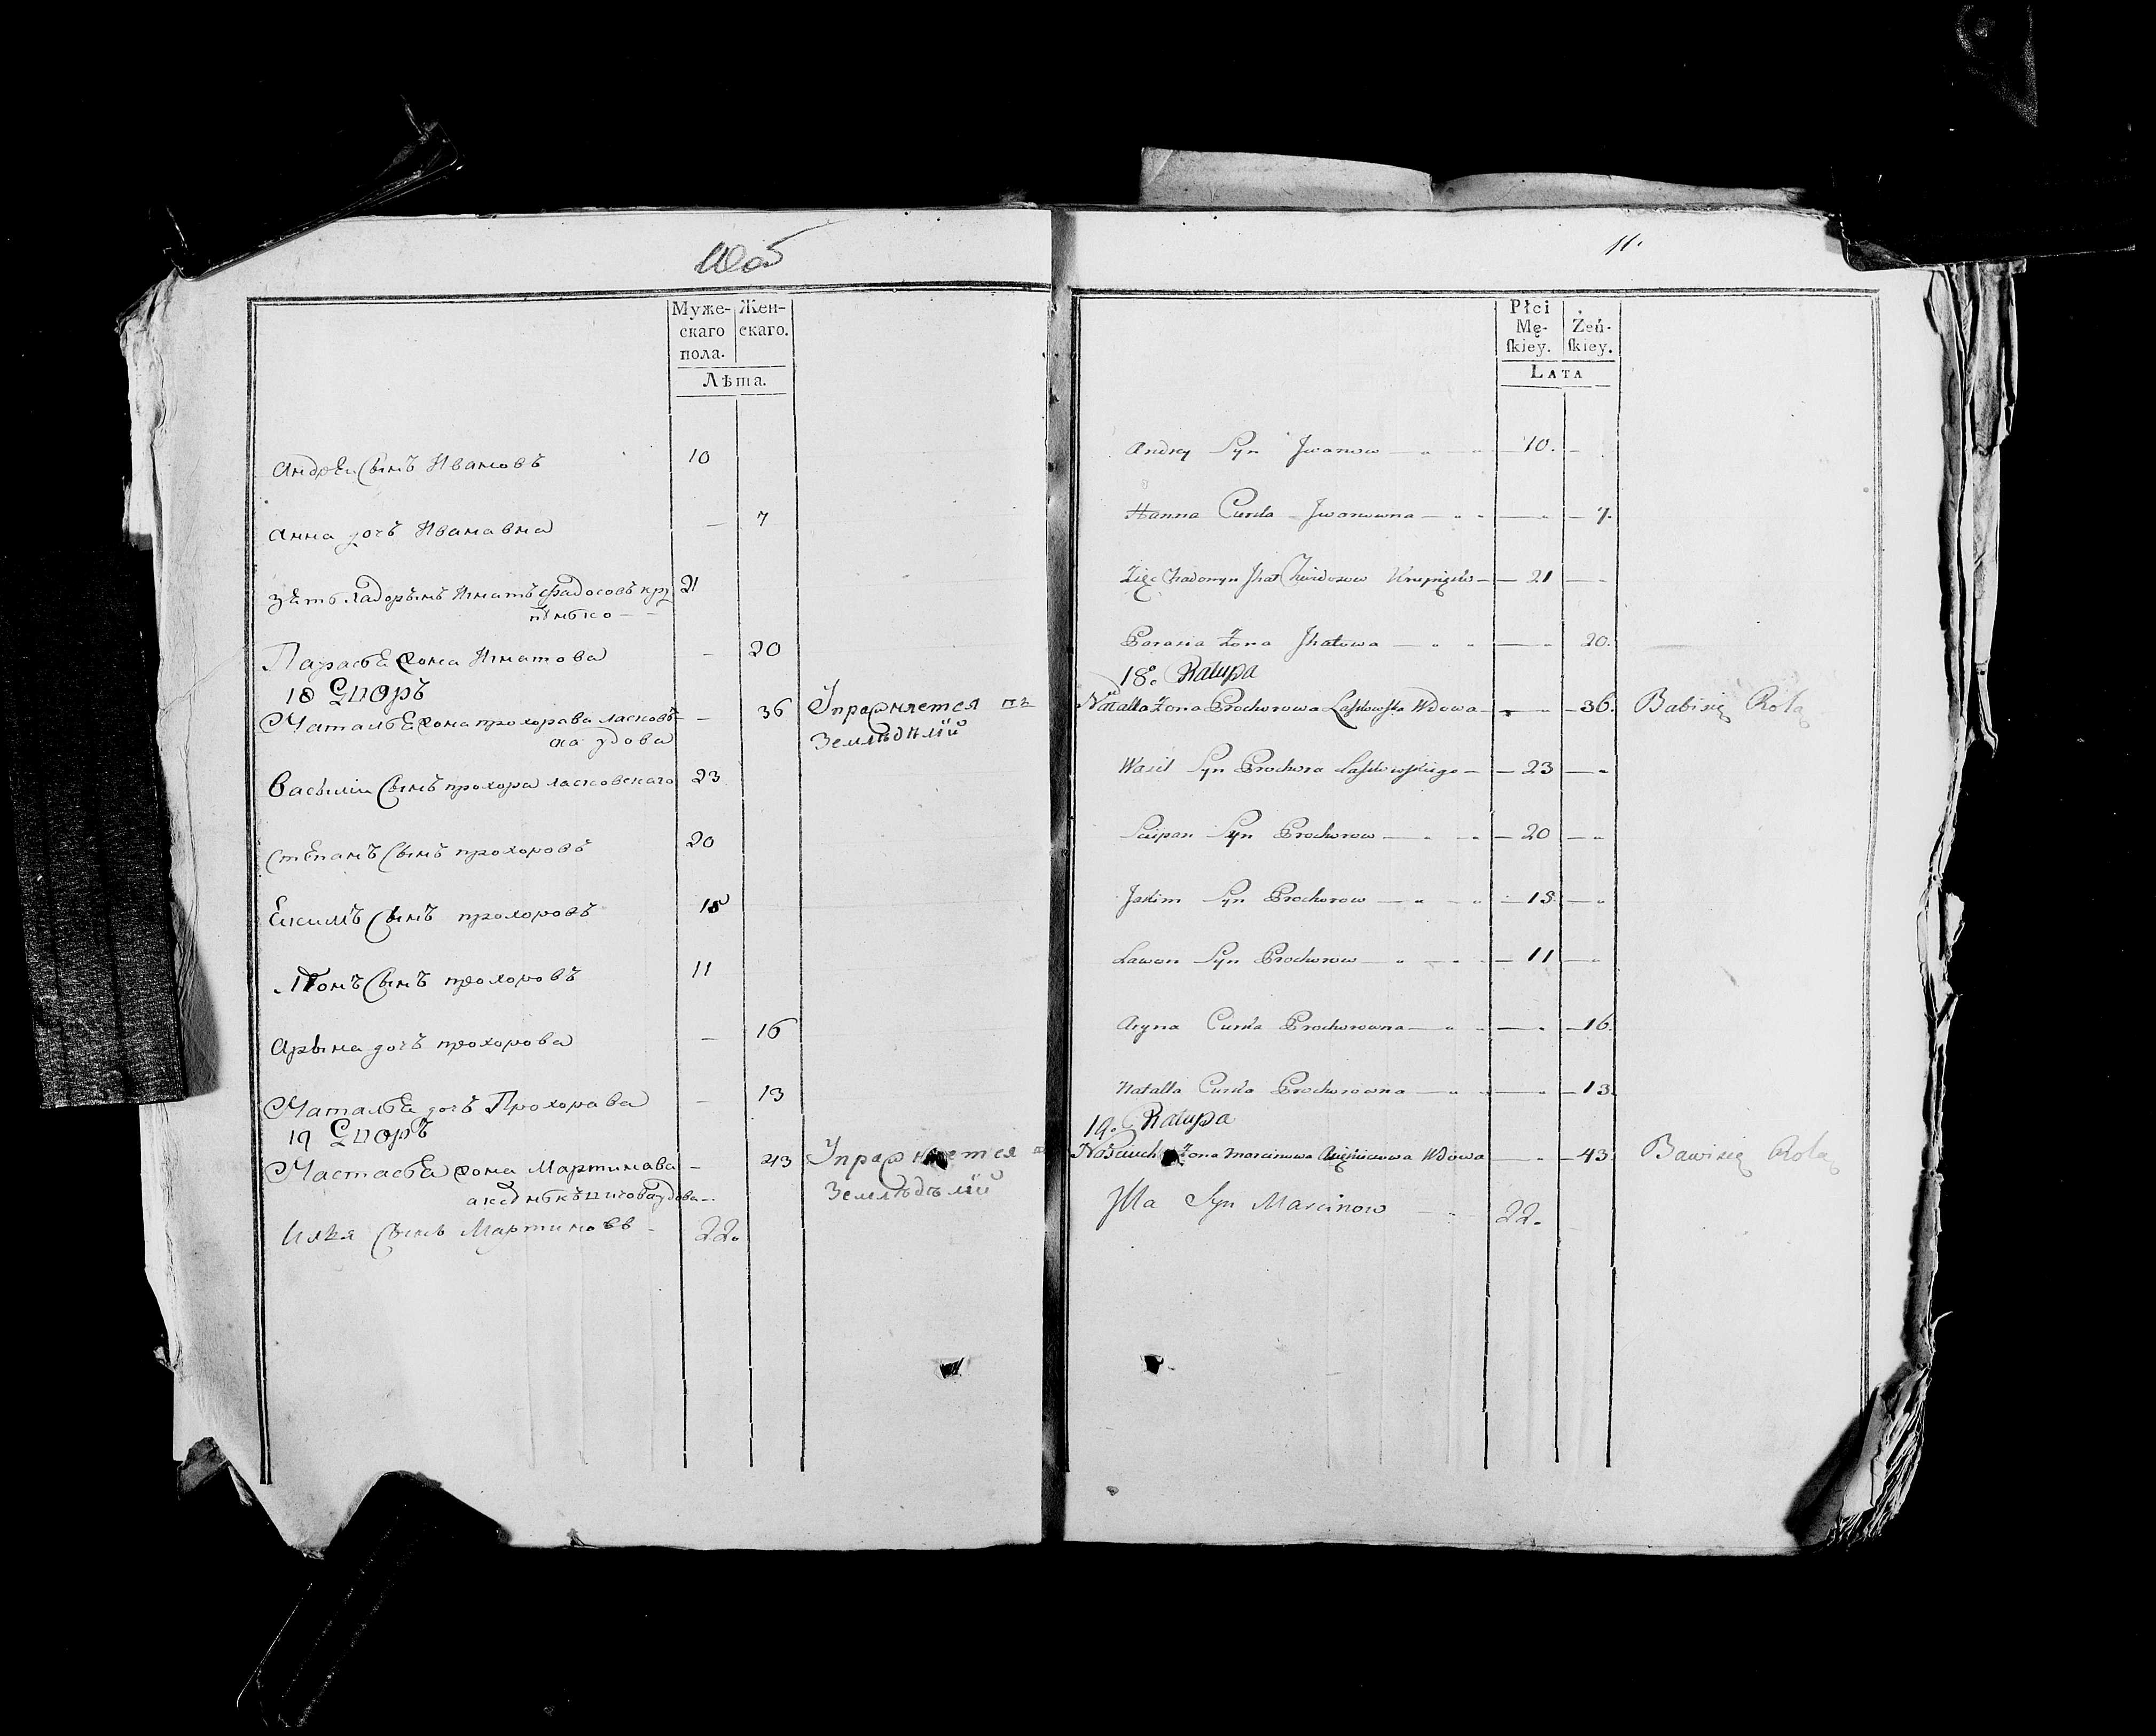 Муже-
скаго
пола.
Жен-
скаго.
Лѣта.
Андрей Сынъ Ивановъ 10
Анна дочъ Иванавна — 7
21
Параскa жона Игнатова — 20
18 Споръ
Наталья жона прохорава ласковъ- — 36 Упражняется въ
ка удова Земледѣлій
Василій Сынъ прохора ласковскаго 23
Степанъ Сынъ прохоровъ 20
Екимъ Сынъ прохоровъ 15
Сынъ прохоровъ 11
Арына дочъ прохорова — 16
Наталья дочъ Прохорава — 13
19 Споръ
Настасья жона Мартинава — 43 Упражняется
удова — Земледѣлій
Илья Сынъ Мартиновъ — 22.
11.
Płci
Mę-
ſkiey.
Żeń-
ſkiey.
LATA
Andrey Syn Jwanow — " " — 10. —
Hanna Curka Jwanowna — " " — " — 7.
Zięć — 21 — "
Parasia Żona Jhatowa — " " — " 20.
18. Ratupa
Natalla Żona Prochorowa Laskowska Wdowa — " — 36. Babisię Rolą
Wasil Syn Prochora Laskowskiego — — 23 — "
Sciepan Syn Prochorow — " " — 20 — "
Jakim Syn Prochorow — " — " — 15 — "
Lawon Syn Prochorow — " — " — 11 — "
Aryna Curka Prochorowna — " " — " — 16.
Natalla Curka Prochorowna — " " — " — 13.
19. Ratupa
Żona Marcinowa Wdowa — " — 43 Bawisię Rolą
Jlla Syn Marcinow — 22.